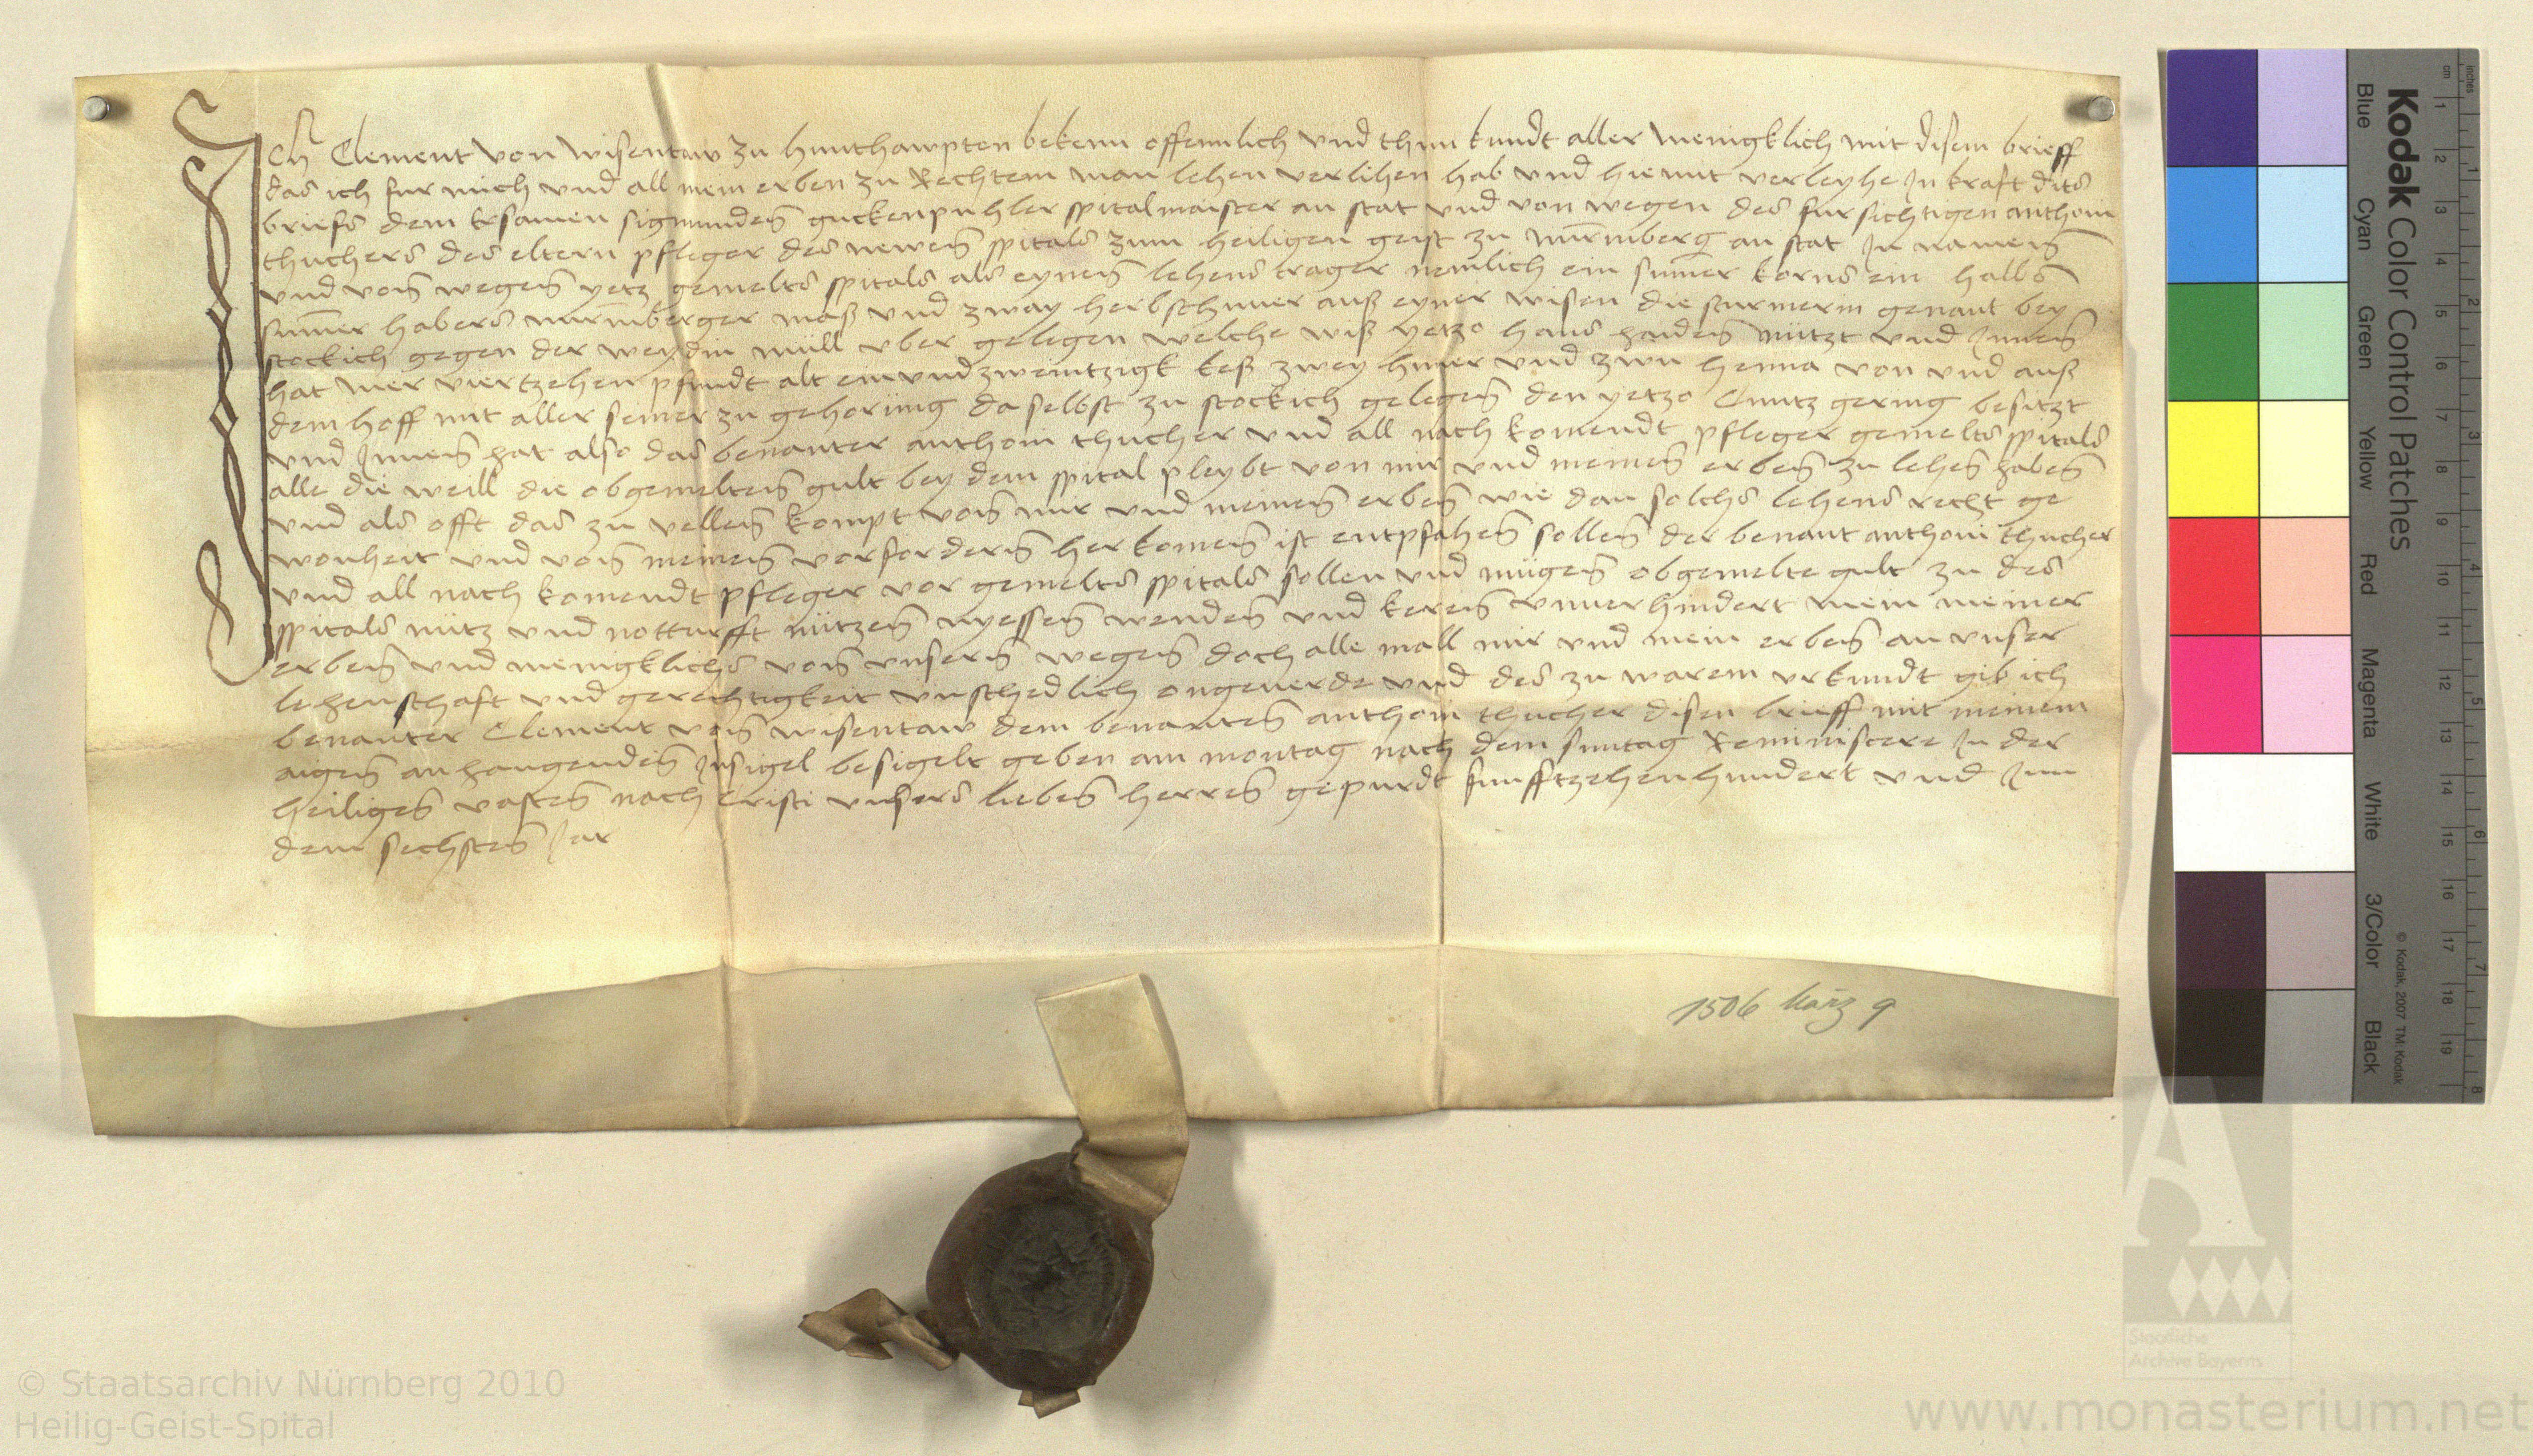 Ich Clement von Wisentaw zu hunthawpten bekenn offennlich vnd thun kundt aller menigklich mit disem brieff
das ich fur mich vnd all mein erben zu Rechtem man lehen verlihen hab vnd hiemit verleyhe In kraft dits
briefs dem Ersamen sigmunden guckenpuhler spitalmaister an stat vnd von wegen des fursichtigen anthoni
thuchers des eltern pfleger des newen spitals zum heiligen geist zu nurmberg an stat In namen
vnd von wegen yetz gemelts spitals als eynen lehens trager nemlich ein sumer korns ein halbs
sumer haberns nurmberger maß vnd zway herbschuner auß eyner wisen die sturmerin genant bey
stockich gegen der weydin mull vber gelegen welche wiß yetzo hans nützt vnd Innen
hat mer viertzehen pfundt alt einvndzweintzigk keß zwey huner vnd zwu henna von vnd auß
dem hoff mit aller seiner zu gehorung daselbst zu stockich gelegen den yetzo Cuntz gering besitzt
vnd Innen hat also das benanter anthoni thucher vnd all nach komendt pfleger gemelts spitals
alle die weill die obgemelten gult bey dem spital pleybt von mir vnd meinen erben zu lehen haben
vnd als offt das zu vellen kompt von mir vnd meinen erben wie dan solchs lehens recht ge
wonheit vnd von meinen vorfordern herkomen ist entpfahen sollen der benant anthoni thucher
vnd all nach komendt pfleger vor gemelts spitals sollen vnd mügen obgemelte gult zu des
spitals nütz vnd notturfft nützen nyessen wenden vnd keren vnuerhindert mein meiner
erben vnd menigklichs von vnsern wegen doch alle mall mir vnd mein erben an vnser
lehenschaft vnd gerechtigkeit vnschedlich ongeuerde vnd des zu warem vrkundt gib ich
benanter Clement von wisentaw dem benanten anthoni thucher disen brieff mit meinem
aigen anhangenden Insigel besigelt geben am montag nach dem suntag Reminiscere In der
heiligen vasten nach Cristi vnsers lieben herren gepurdt funfftzehenhundert vnd Jnn
dem sechsten Jar
1506 März 9
Kodak Color Control Patches
© Kodak, 2007 TM: Kodak
Blue Cyan Green Yellow Red Magenta White 3/Color Black
inches 1 2 3 4 5 6 7 8
cm 1 2 3 4 5 6 7 8 9 10 11 12 13 14 15 16 17 18 19
Staatliche
Archive Bayerns
© Staatsarchiv Nürnberg 2010
Heilig-Geist-Spital
www.monasterium.net